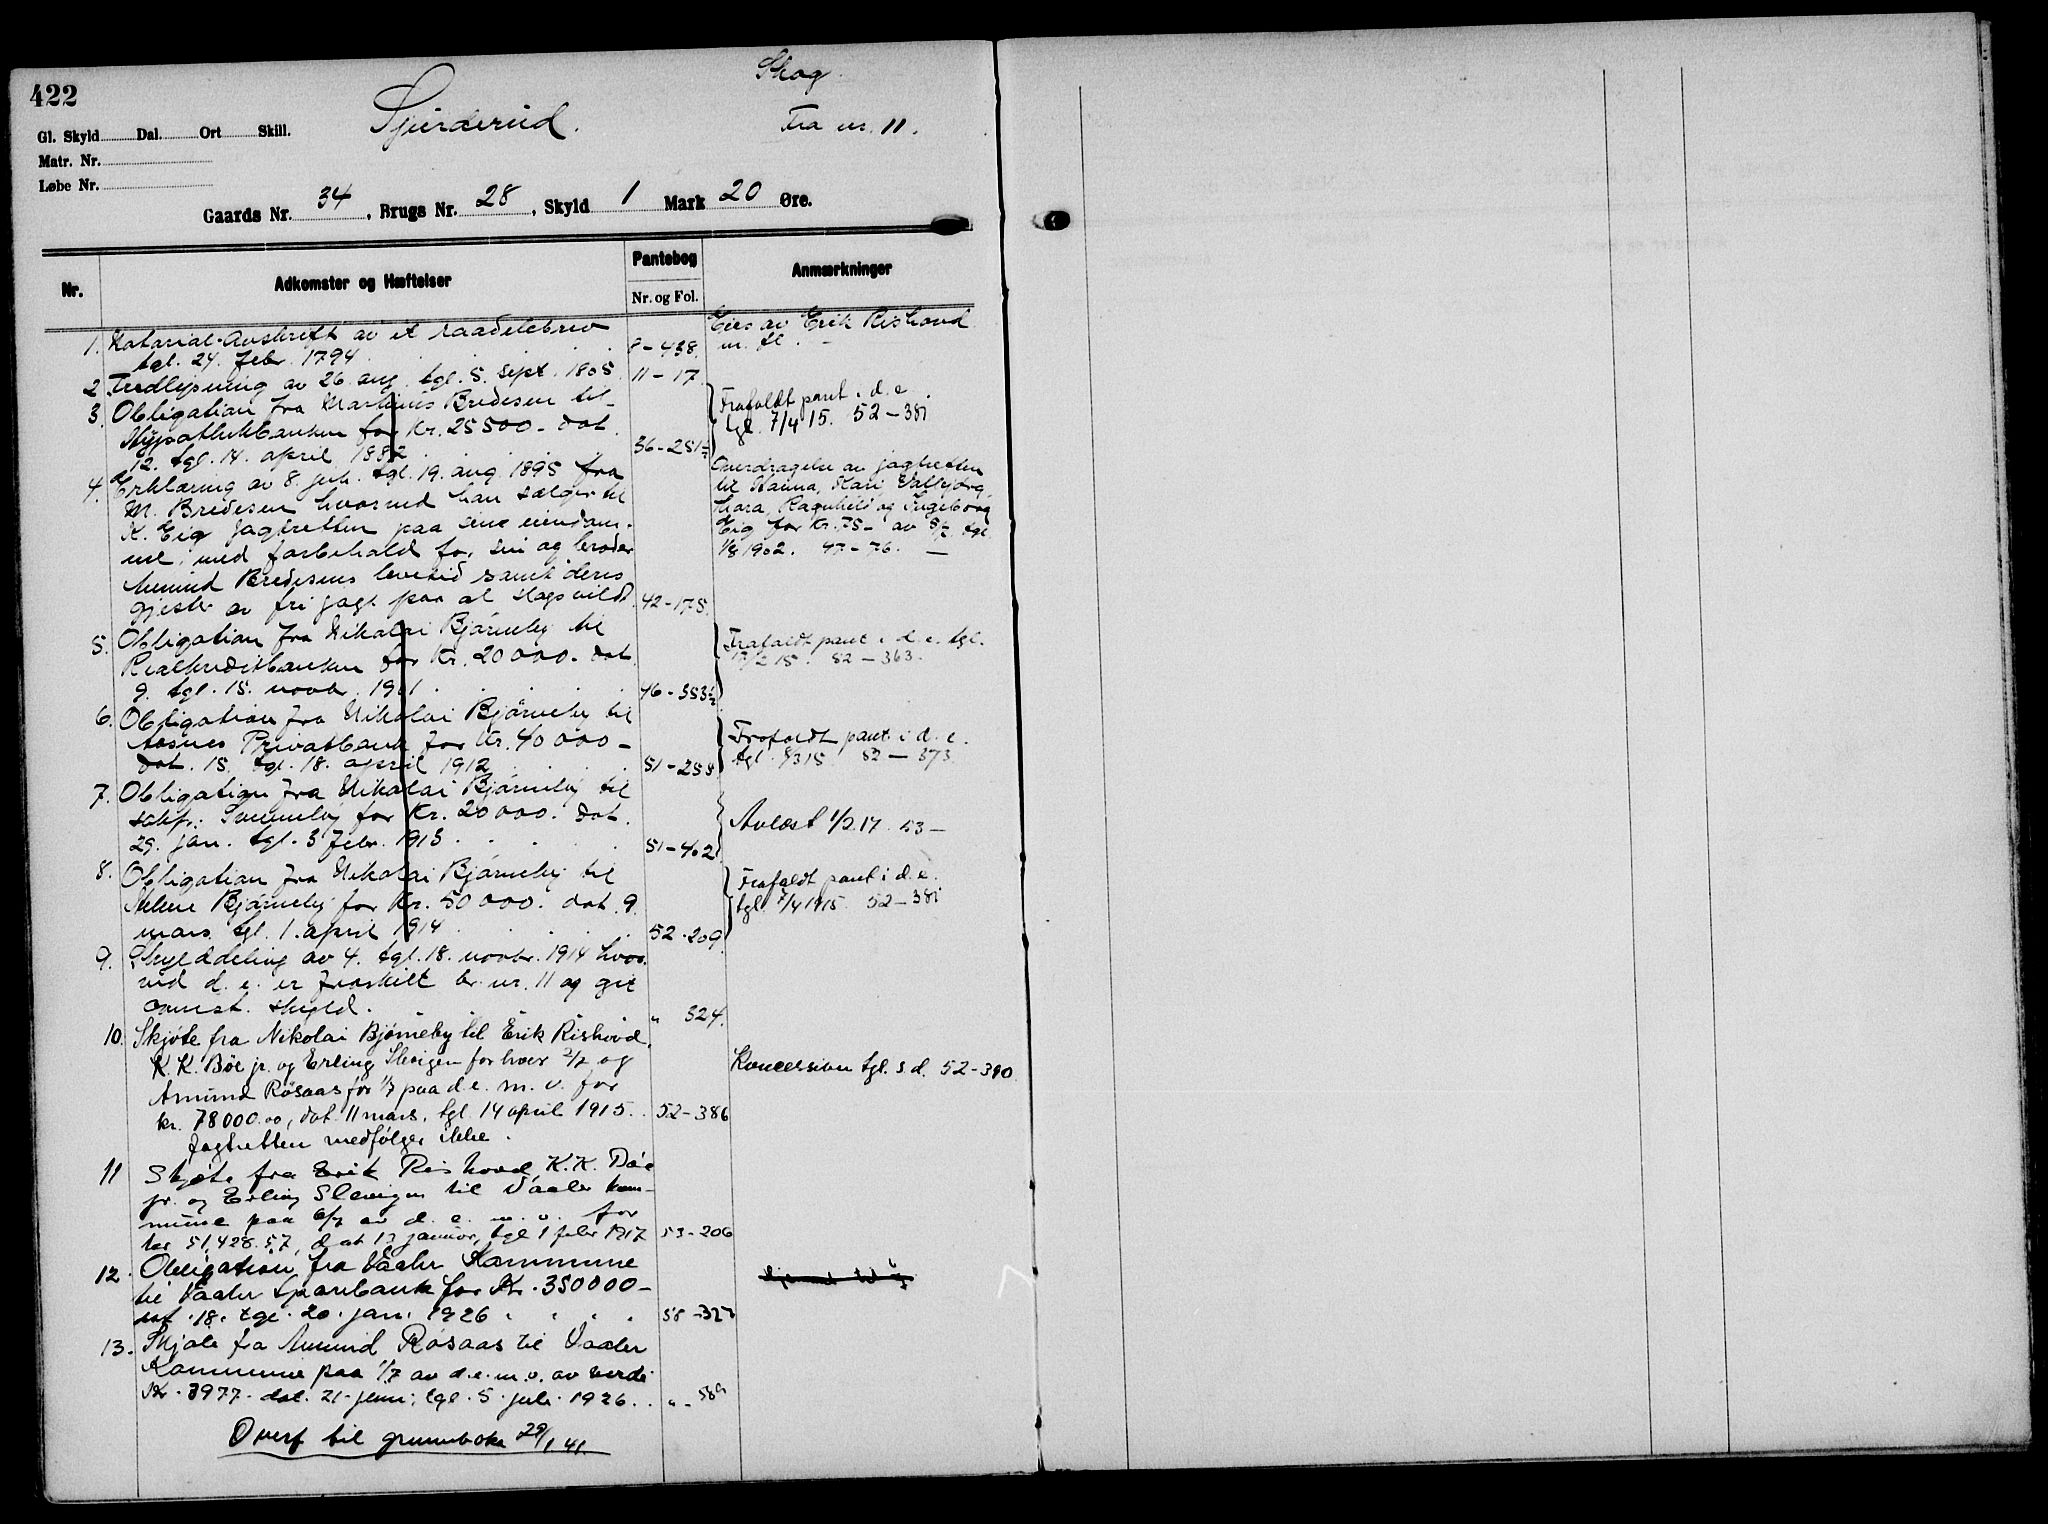 422
Skog.
Sjurderud.
Fra nr. 11.
Gl. Skyld Dal. Ort Skill.
Matr. Nr.
Løbe Nr.
Gaards Nr. 34, Brugs Nr. 28, Skyld 1 Mark 20 Øre.
Nr. Adkomster og Hæftelser Pantebog Nr. og Fol. Anmærkninger
1. Notarial-Avskrift av et raadelsbrev
tgl. 24. febr. 1794. 8-438.
Eies av Erik Rishovd
m. fl. -
2. Fredlysning av 26. aug. tgl. 5. sept. 1805. 11-17
3. Obligation fra Martinus Bredesen til
Hypothekbanken for Kr. 25500- dat.
12. tgl. 14. april 1882 36-251
Frafaldt pant i d. e.
tgl. 7/4 15. 52-381
4. Erklæring av 8. juli tgl. 19. aug. 1895 fra
M. Bredesen hvorved han sælger til
K. Eig jagtretten paa sine eiendom-
me, med forbehold for sin og broder
Amund Bredesens levetid samt deres
gjester av fri jagt paa al slags vildt. 42-175.
Overdragelse av jagtretten
til Hanna, Kari, Valbjørg,
Thora, Ragnhild og Ingeborg
Eig for Kr. 75- av tgl.
1/8 1902. 47-76. -
5. Obligation fra Nikolai Bjørneby til
Realkreditbanken for Kr. 20000- dat.
9. tgl. 15. novbr. 1901 46-353½
Frafaldt pant i d. e. tgl.
15. 52-363.
6. Obligation fra Nikolai Bjørneby til
Aasnes Privatbank for Kr. 40000-
dat. 15. tgl. 18. april 1912 51-258
Frafaldt pant i d. e.
tgl. 8/3 15 52-373
7. Obligation fra Nikolai Bjørneby til
Svenneby for Kr. 20000. dat.
29. jan. tgl. 3 febr. 1913 51-402
Avlæst 1/2 17. 53-
8. Obligation fra Nikolai Bjørneby til
Helene Bjørneby for Kr. 50000. dat. 9.
mars tgl. 1. april 1914 52-209
Frafaldt pant i d. e.
tgl. 7/4 1915. 52-381
9. Skylddeling av 4. tgl. 18. novbr. 1914 hvor-
ved d. e. er fraskilt br. nr. 11 og git
omst. skyld. " 324.
10. Skjøte fra Nikolai Bjørneby til Erik Rishovd,
K. K. Bøe jr. og Erling Slevigen for hver 2/7 og
Amund Røsaas for 1/7 paa d. e. m. v. for
kr. 78000.00, dat. 11 mars, tgl. 14 april 1915. 52-386
Jagtretten medfølger ikke.
Koncession tgl. s. d. 52-390
11 Skjøte fra Erik Rishovd, K. K. Bøe
jr. og Erling Slevigen til Vaaler kom-
mune paa 6/7 av d. e. m. v. for
kr 51,428.57, dat 13 januar, tgl 1 febr 1917 53-206
12. Obligation fra Vaaler Kommune
til Vaaler Sparebank for Kr. 350000-
dat. 18. tgl. 20. jan. 1926 58-327
13. Skjøte fra Amund Røsaas til Vaaler
Kommune paa 1/7 av d. e. m. v. av verdi
Kr. 3977- dat. 21. juni, tgl. 5. juli 1926. "-589
Overf til grunnboka 29/1 41.